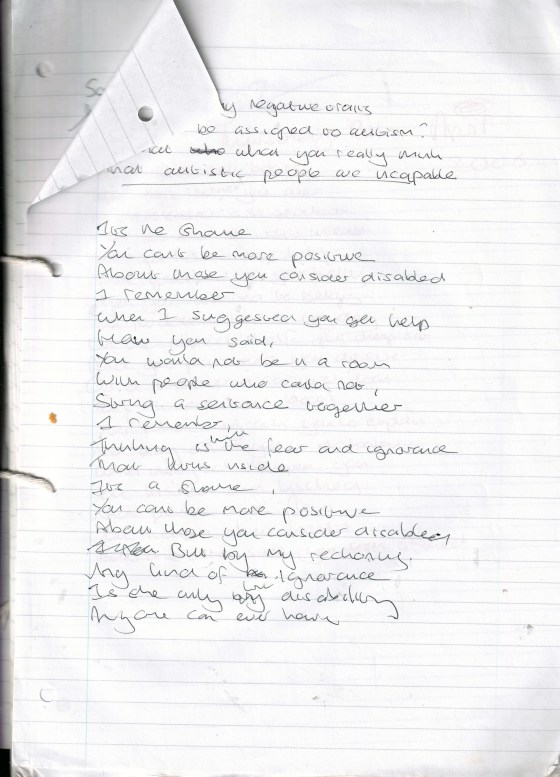 So
negative traits
be assigned to autism?
what you really think
that autistic people are incapable
Its the shame
You cant be more positive
About those you consider disabled
I remember
When I suggested you get help
How you said,
You would not be in a room
With people who could not,
String a sentence together
I remember,
Thinking is this the fear and ignorance
That lives inside
Its a shame,
You cant be more positive
About those you consider disabled
But by my reckoning.
Any kind of ignorance
Is the only disability
Anyone can ever have